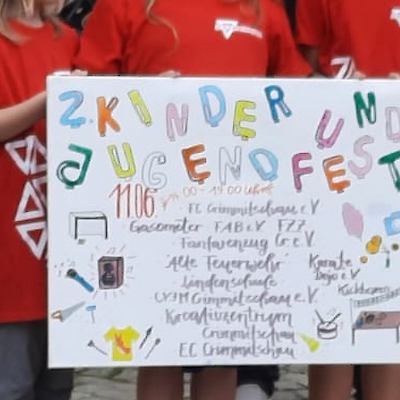 2. KINDER UND
JUGENDFEST
11.06. 00 - 19:00 Uhr
FC Crimmitschau e.V.
Gasometer FAB e.V. FZZ
Fanfarenzug Cr. e.V.
"Alte Feuerwehr" Karate
Lindenschule Dojo e.V
CVJM Crimmitschau e.V. Kickboxen
Kreativzentrum
Crimmitschau
EC Crimmitschau